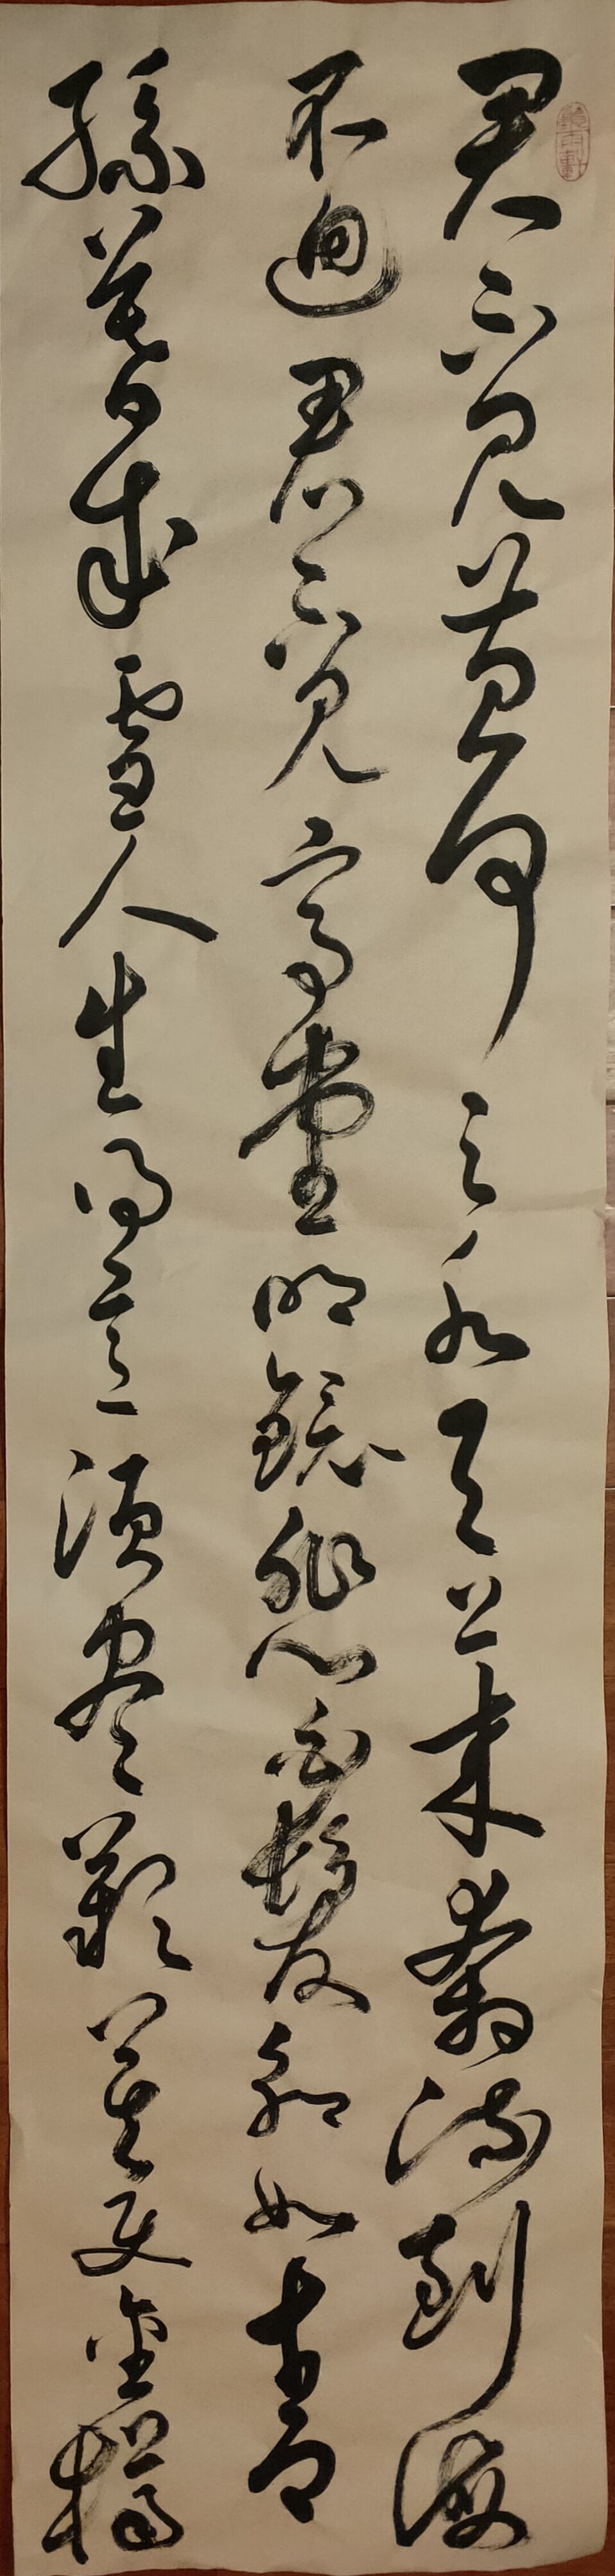 君不見黃河之水天上來奔流到海
不迴君不見高堂明鏡悲白髮朝如青
絲暮成雪人生得意須盡歡莫使金樽